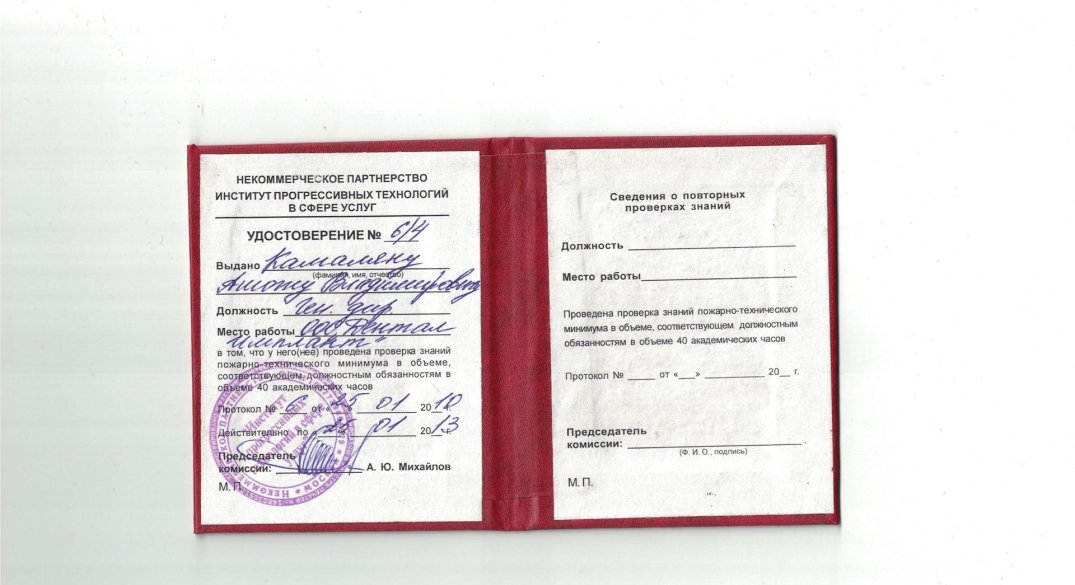 НЕКОММЕРЧЕСКОЕ ПАРТНЕРСТВО
ИНСТИТУТ ПРОГРЕССИВНЫХ ТЕХНОЛОГИЙ
В СФЕРЕ УСЛУГ
УДОСТОВЕРЕНИЕ № 6/4
Выдано Камаляну
(фамилия, имя, отчество)
Владимировичу
Должность Ген. дир.
Место работы ООО "Дентал
Имплант"
в том, что у него(нее) проведена проверка знаний
пожарно-технического минимума в объеме,
соответствующем должностным обязанностям в
объеме 40 академических часов
Протокол № 6 от «25» 01 2010
Действительно по «25» 01 2013
Председатель
комиссии: А. Ю. Михайлов
М. П.
Институт
прогрессивных
технологий в сфере
услуг
МОСКВА
Сведения о повторных
проверках знаний
Должность
Место работы
Проведена проверка знаний пожарно-технического
минимума в объеме, соответствующем должностным
обязанностям в объеме 40 академических часов
Протокол № от «__» 20__ г.
Председатель
комиссии:
(Ф. И. О., подпись)
М. П.